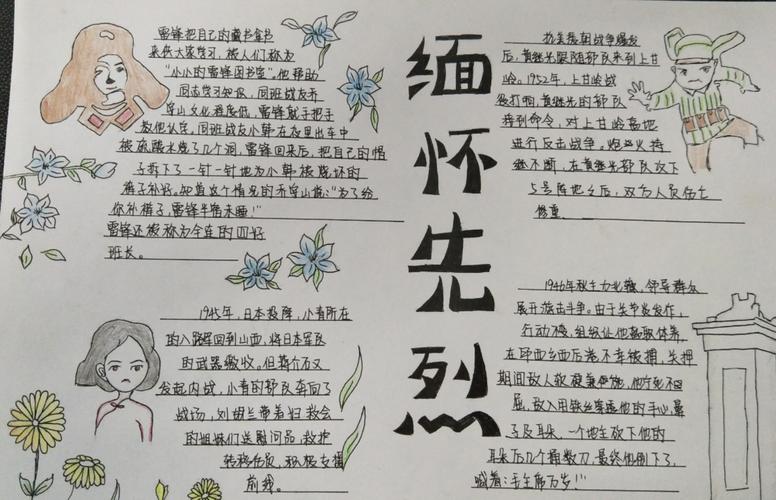 缅怀先烈
雷锋把自己的藏书拿出
来供大家学习，被人们称为
“小小的雷锋图书室”。他帮助
同志学习知识，同班战友乔
安山文化程度低，雷锋就手把手
教他认字。同班战友小韩在夜里出车中
被硫酸水烧了几个洞，雷锋回来后，把自己的帽
子拆下了一针一针地为小韩被烧坏的
裤子补好。知道这个情况的乔安山说：“为了给
你补裤子，雷锋半宿未睡！”
雷锋还被称为全连的四好
班长。
抗美援朝战争爆发
后，黄继光跟随部队来到上甘
岭。1952年，上甘岭战
役打响，黄继光的部队
接到命令，对上甘岭高地
进行反击战争。炮火持
续不断，在黄继光部队攻下
5号阵地之后，双方人员伤亡
惨重
1945年，日本投降，小青所在
的八路军回到山西，将日本军队
的武器缴收。但蒋介石又
发起内战，小青的部队奔向了
战场，刘胡兰带着妇救会
的姐妹们送慰问品，救护
转移伤员，积极支援
前线。
1946年秋主力北撤，领导群众
展开游击斗争。由于关节炎发作，
行动不便，组织让他离职休养，
在毕西乡西后巷不幸被捕，关押
期间敌人软硬兼施，他宁死不
屈，敌人用铁丝穿透他的手心，鼻
子及耳朵，一个地主放下他的
耳朵后几个捅数刀，最终他倒下了，
喊着：毛主席万岁！”